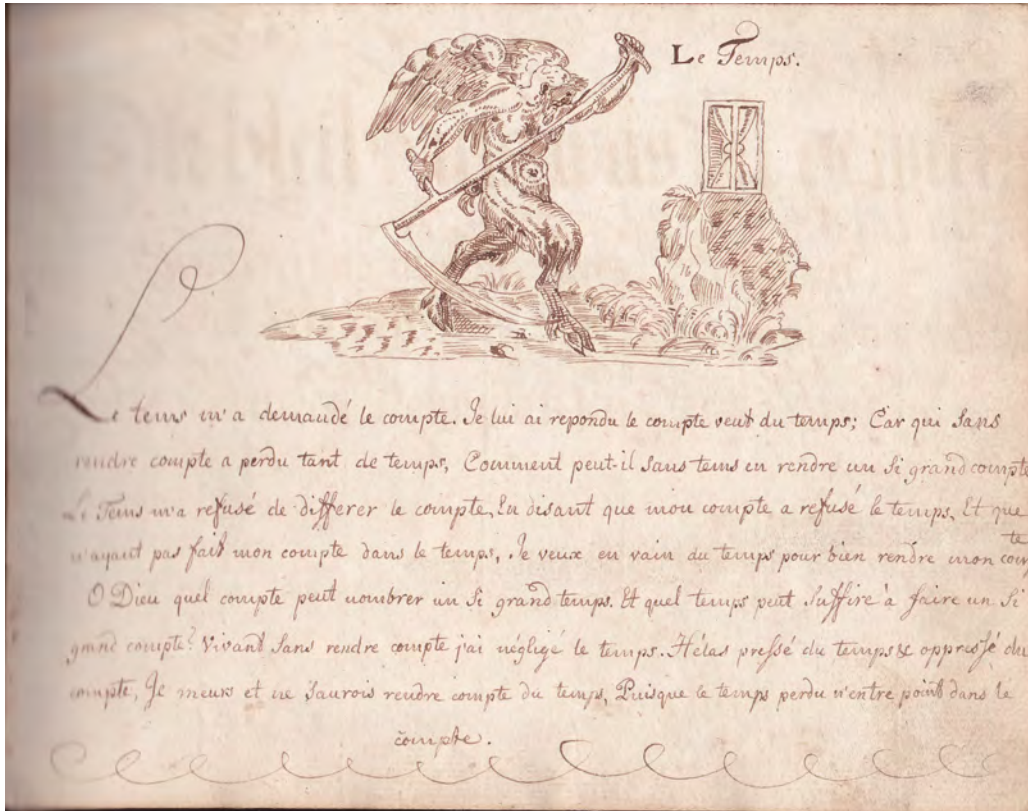 Le Temps.
Le tems m'a demandé le compte. Je lui ai repondu le compte veut du temps; Car qui sans
rendre compte a perdu tant de temps, Comment peut-il sans tems en rendre un si grand compte
Le Tems m'a refusé de differer le compte, En disant que mon compte a refusé le temps, Et que
n'ayant pas fait mon compte dans le temps, Je veux en vain du temps pour bien rendre mon compte
O Dieu quel compte peut nombrer un si grand temps. Et quel temps peut suffire à faire un si
grand compte? Vivant sans rendre compte j'ai négligé le temps. Hélas pressé du temps & oppressé du
compte, Je meurs et ne saurois rendre compte du temps, Puisque le temps perdu n'entre point dans le
compte.